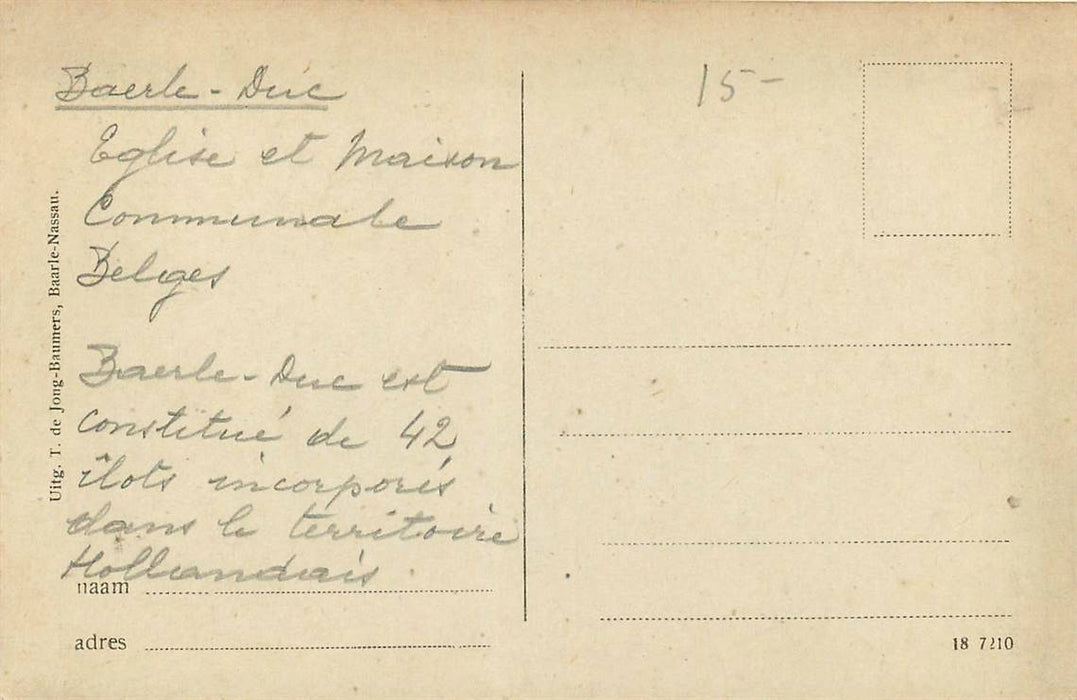 Baerle-Duc
Eglise et Maison
Communale
Belges
Baerle-Duc est
constitué de 42
îlots incorporés
dans le territoire
Hollandais.
naam
adres
Uitg. T. de Jong-Baumers, Baarle-Nassau.
15-
18 7210